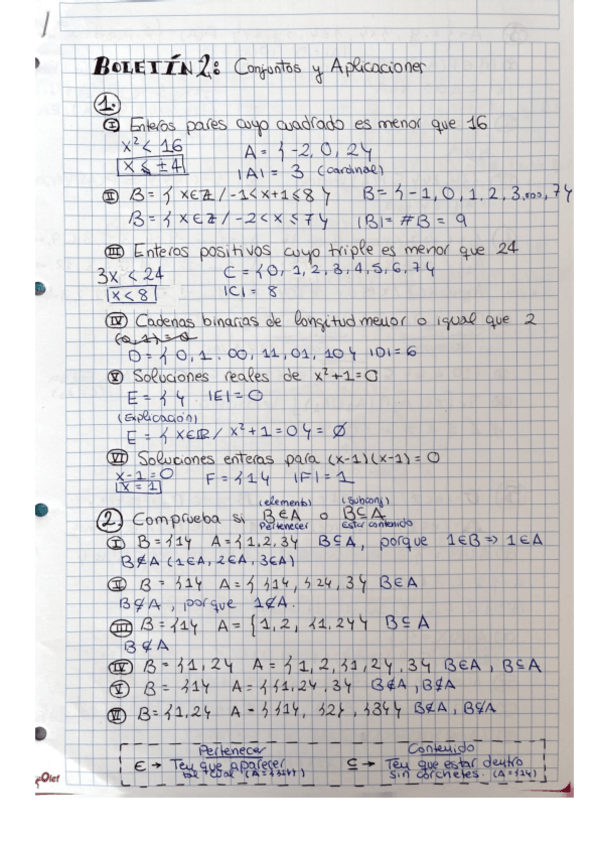 BOLETÍN 2: Conjuntos y Aplicaciones
1.
I Enteros pares cuyo cuadrado es menor que 16
x² < 16 A = {-2, 0, 2}
x ≤ ±4 |A| = 3 (cardinal)
II B = {x∈Z / -1<x+1≤8} B = {-1, 0, 1, 2, 3,..., 7}
B = {x∈Z / -2<x≤7} |B| = #B = 9
III Enteros positivos cuyo triple es menor que 24
3x < 24 C = {0, 1, 2, 3, 4, 5, 6, 7}
x < 8 |C| = 8
IV Cadenas binarias de longitud menor o igual que 2
D = {0, 1, 00, 11, 01, 10} |D| = 6
V Soluciones reales de x²+1=0
E = { } |E| = 0
(Explicación)
E = {x∈R / x²+1=0} = ∅
VI Soluciones enteras para (x-1)(x-1) = 0
x-1=0 F = {1} |F| = 1
x = 1
(elemento) (subconj)
2. Comprueba si B∈A o B⊆A
Pertenecer Estar contenido
I B = {1} A = {1, 2, 3} B⊆A, porque 1∈B ⇒ 1∈A
B∉A (1∈A, 2∈A, 3∈A)
II B = {1} A = {{1}, {2}, 3} B∈A
B⊈A, porque 1∉A.
III B = {1} A = {1, 2, {1, 2}} B⊆A
B∉A
IV B = {1, 2} A = {1, 2, {1, 2}, 3} B∈A, B⊆A
V B = {1} A = {{1, 2}, 3} B∉A, B⊈A
VI B = {1, 2} A = {{1}, {2}, {3}} B∉A, B⊈A
Pertenecer Contenido
∈ → Ten que aparecer ⊆ → Ten que estar dentro
sin corchetes. (A={2})
Oxford